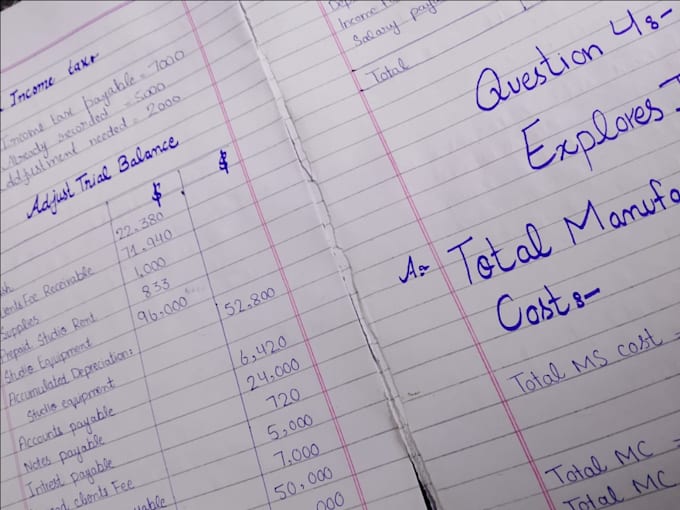 Income tax:
Income tax payable = 7000
Already recorded = 5000
Adjustment needed = 2000
Adjust Trial Balance
$ $
22.380
Clients Fee Receivable 71.940
Supplies 1,000
Prepaid Studio Rent 833
Studio Equipment 96.000
Accumulated Depreciation: 52.800
Studio equipment
Accounts payable 6,420
Notes payable 24,000
Intrest payable 720
clients Fee 5,000
7,000
50,000
000
Income
Salary
Total
Question 4:-
Explores
A:- Total
Cost:-
Total MS cost =
Total MC =
Total MC